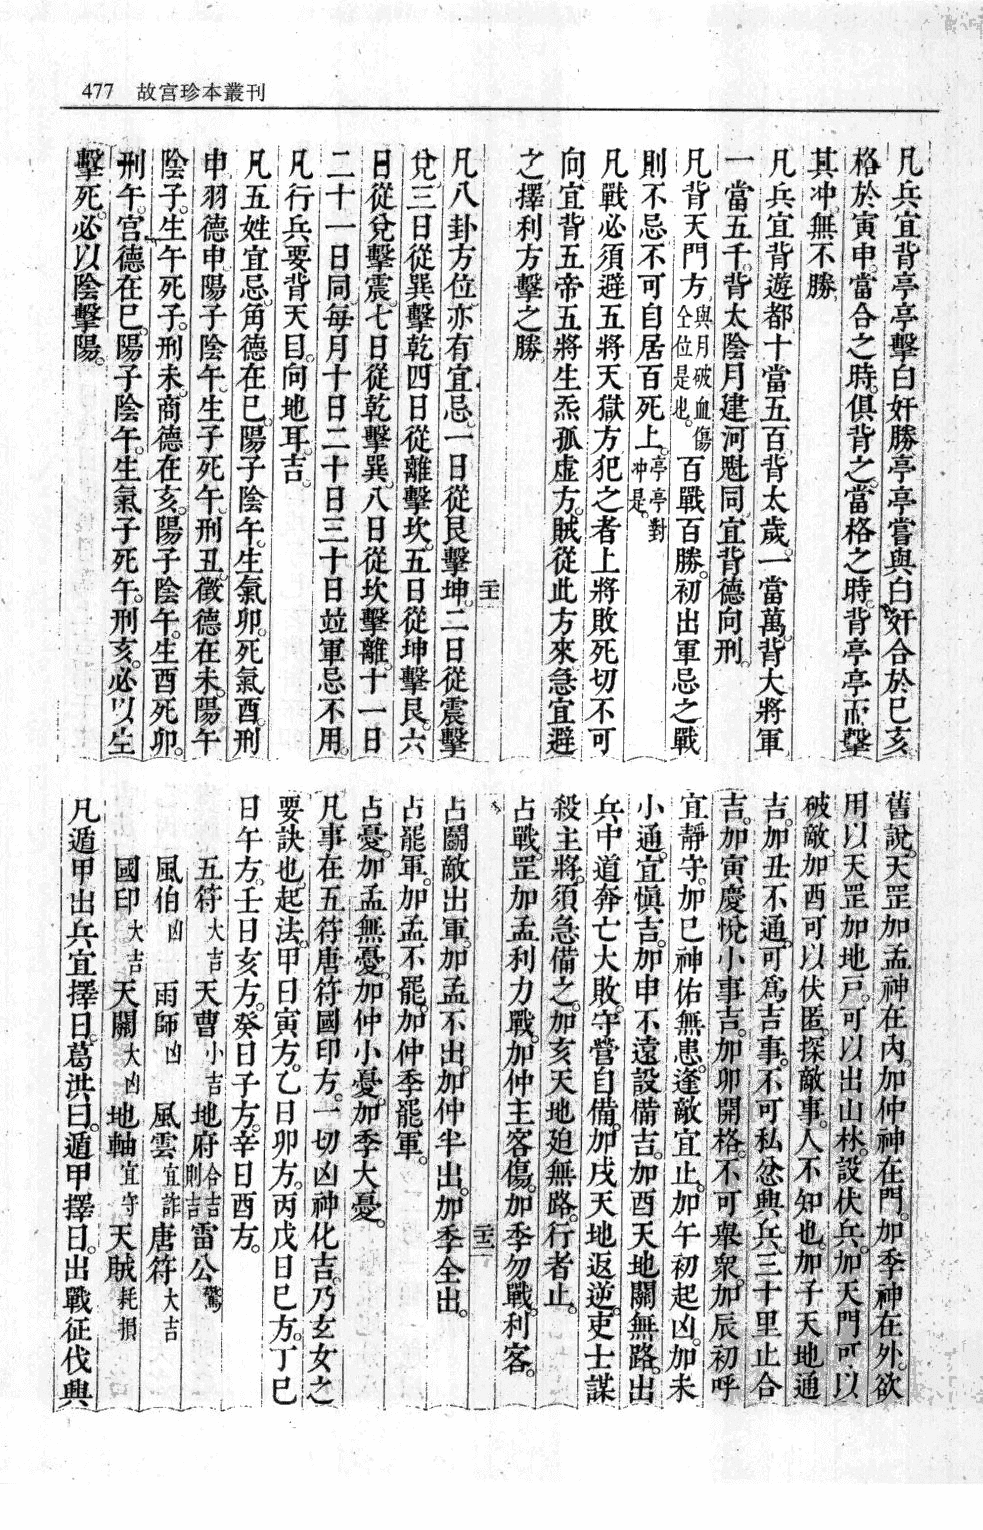 477 故宫珍本叢刊
凡兵宜背亭亭擊白奸勝亭亭嘗與白奸合於巳亥
格於寅申當合之時俱背之當格之時背亭亭而擊
其冲無不勝
凡兵宜背遊都十當五百背太歲一當萬背大將軍
一當五千背太陰月建河魁同宜背德向刑
凡背天門方與月破血傷仝位是也百戰百勝初出軍忌之戰
則不忌不可自居百死上亭亭對冲是
凡戰必須避五將天獄方犯之者上將敗死切不可
向宜背五帝五將生炁孤虛方賊從此方來急宜避
之擇利方擊之勝
凡八卦方位亦有宜忌一日從艮擊坤二日從震擊
兌三日從巽擊乾四日從離擊坎五日從坤擊艮六
日從兌擊震七日從乾擊巽八日從坎擊離十一日
二十一日同每月十日二十日三十日竝軍忌不用
凡行兵要背天目向地耳吉
凡五姓宜忌角德在巳陽子陰午生氣卯死氣酉刑
申羽德申陽子陰午生子死午刑丑徵德在未陽午
陰子生午死子刑未商德在亥陽子陰午生酉死卯
刑午宮德在巳陽子陰午生氣子死午刑亥必以生
擊死必以陰擊陽
舊說天罡加孟神在內加仲神在門加季神在外欲
用以天罡加地戸可以出山林設伏兵加天門可以
破敵加酉可以伏匿探敵事人不知也加子天地通
吉加丑不通可為吉事不可私忿興兵三十里止合
吉加寅慶悅小事吉加卯開格不可舉衆加辰初呼
宜靜守加巳神佑無患逢敵宜止加午初起凶加未
小通宜愼吉加申不遠設備吉加酉天地關無路出
兵中道奔亡大敗守營自備加戌天地返逆吏士謀
殺主將須急備之加亥天地廹無路行者止
占戰罡加孟利力戰加仲主客傷加季勿戰利客
占鬭敵出軍加孟不出加仲半出加季全出
占罷軍加孟不罷加仲季罷軍
占憂加孟無憂加仲小憂加季大憂
凡事在五符唐符國印方一切凶神化吉乃玄女之
要訣也起法甲日寅方乙日卯方丙戊日巳方丁巳
日午方壬日亥方癸日子方辛日酉方
五符大吉 天曹小吉 地府合吉則吉 雷公驚
風伯凶 雨師凶 風雲宜詐 唐符大吉
國印大吉 天關大凶 地軸宜守 天賊耗損
凡遁甲出兵宜擇日葛洪曰遁甲擇日出戰征伐興